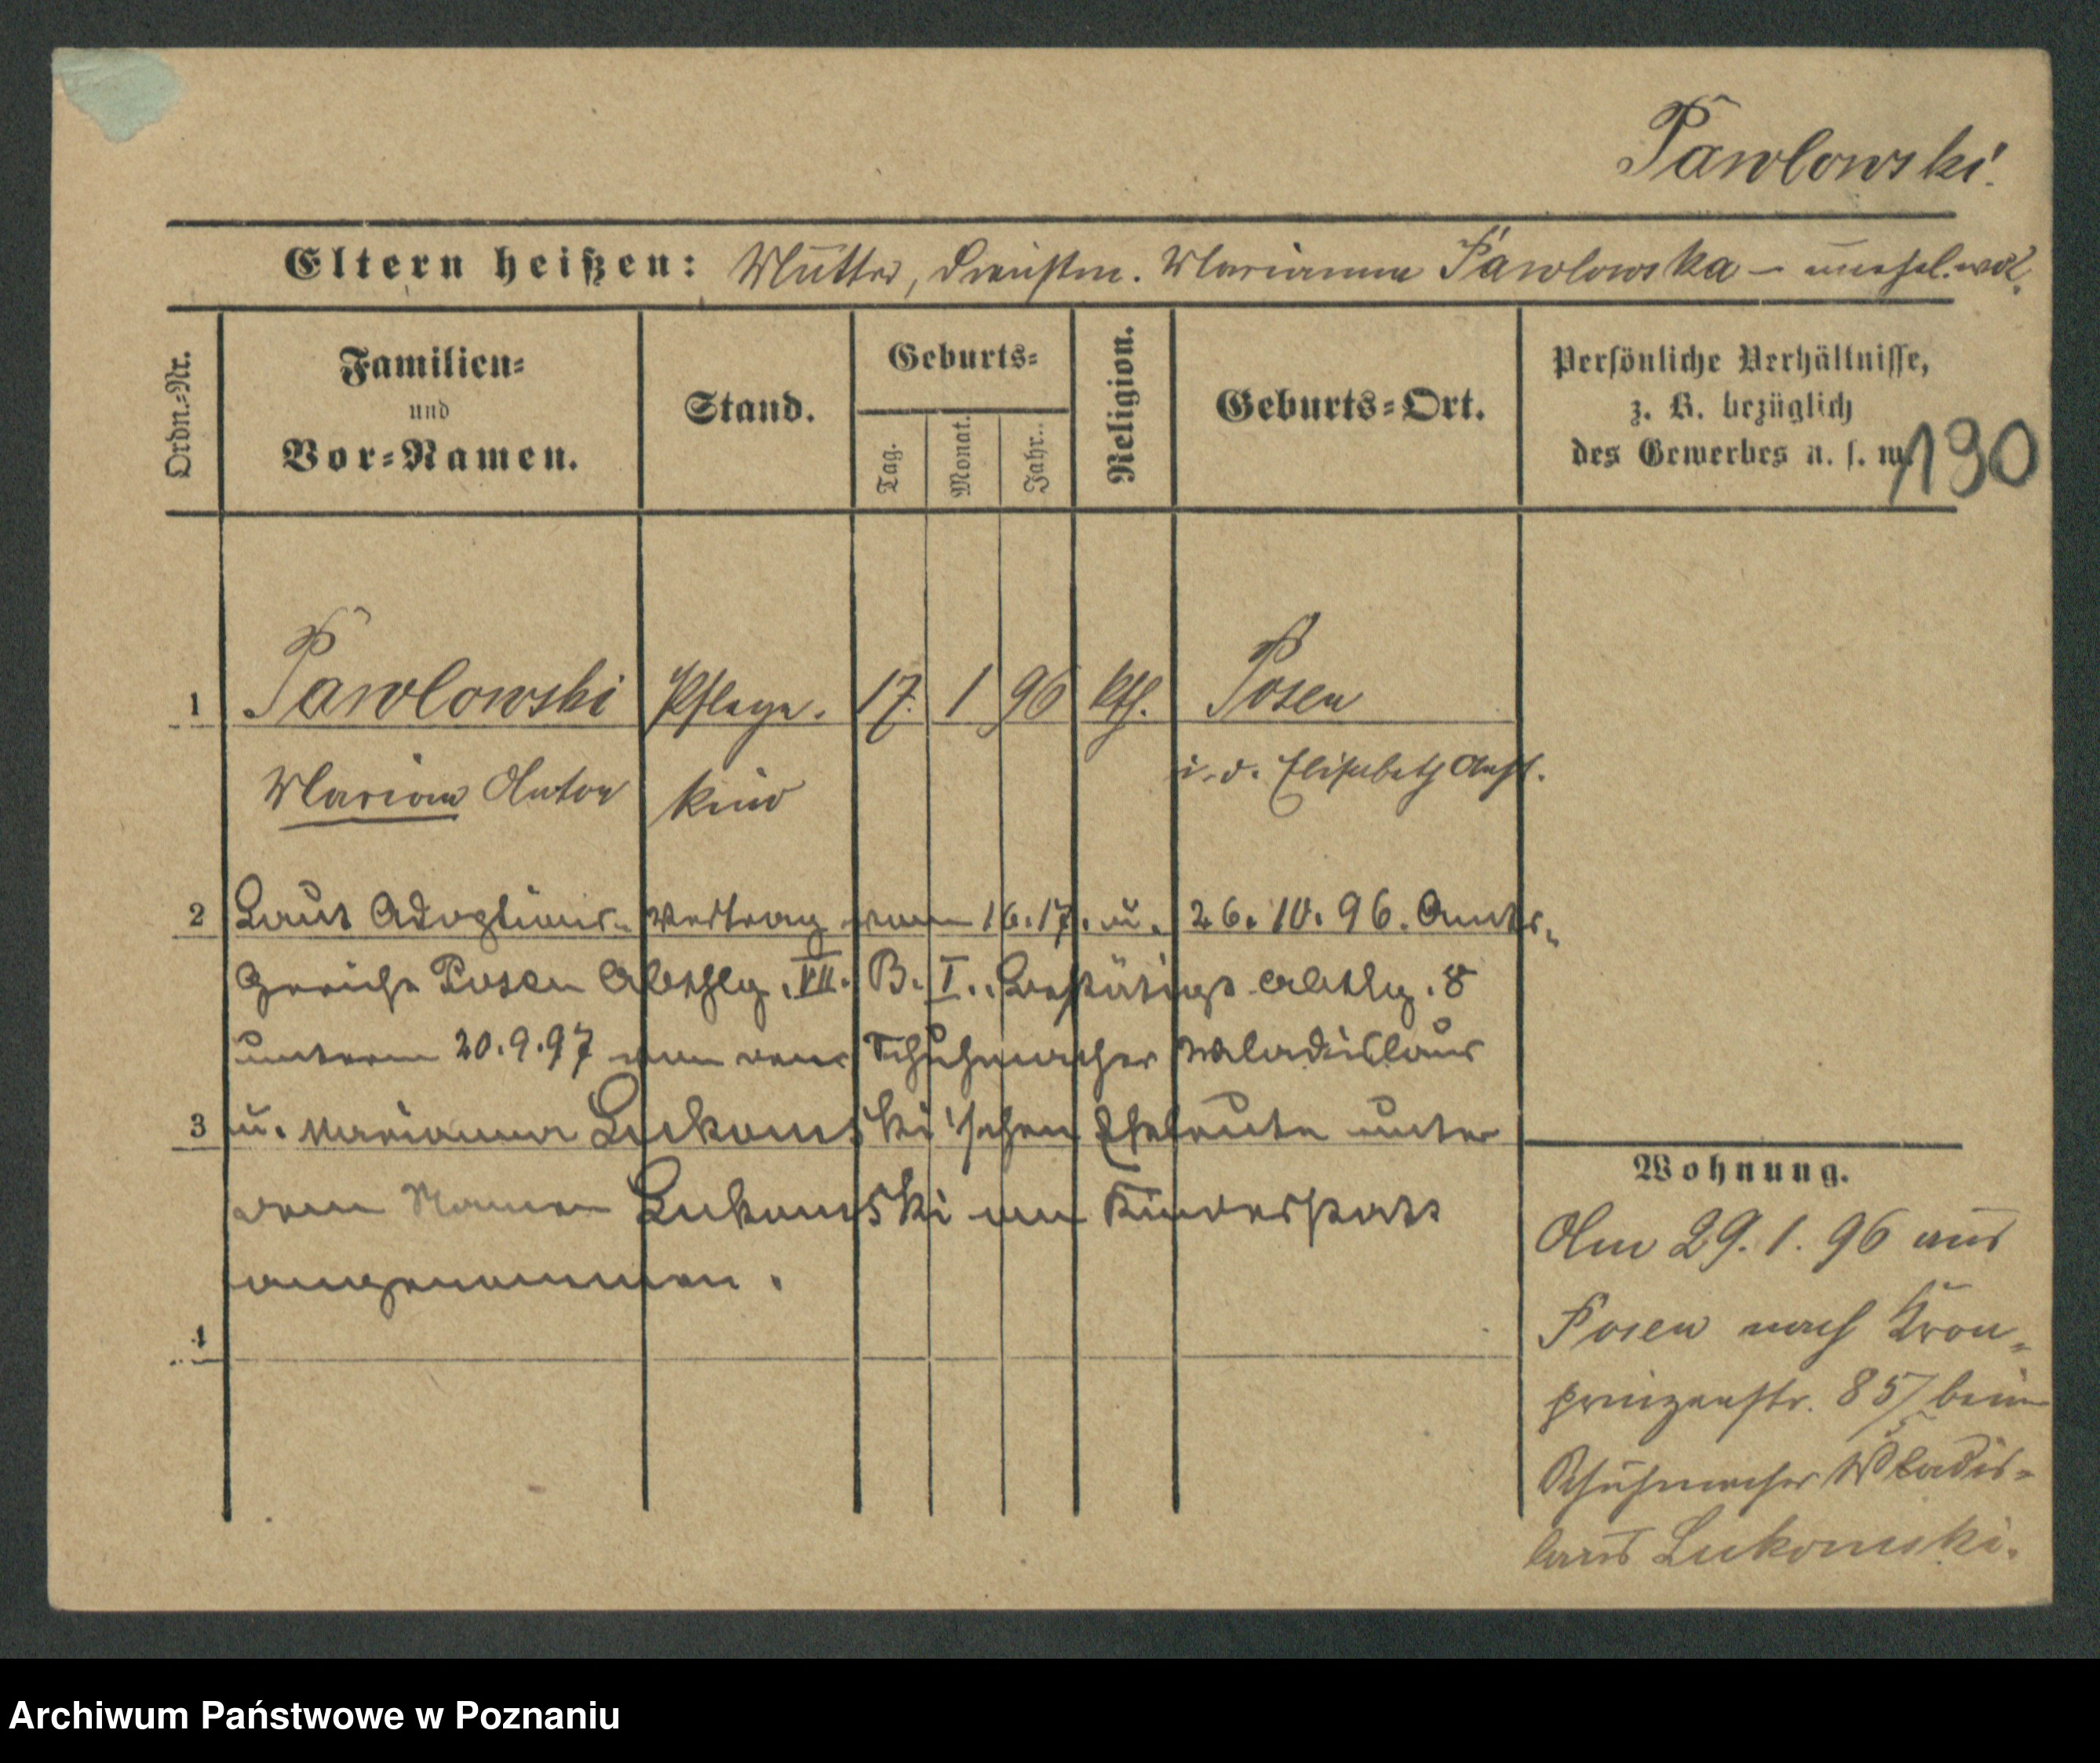 Pawlowski.
Eltern heißen: Mutter, Dienstm. Marianna Pawlowska —
Ordn.-Nr.
Familien-
und
Vor-Namen.
Stand.
Geburts-
Tag.
Monat.
Jahr.
Religion.
Geburts-Ort.
Persönliche Verhältnisse,
z. B. bezüglich
des Gewerbes u. s. w.
190
1 Pawlowski Pflege. 17. 1 96 kth. Posen
Marian Anton kind i. d. Elisabeth Anst.
2 Laut Adoptions- Vertrag vom 16. 17. u. 26. 10. 96. Amts-
Gericht Posen Abthlg. VII. B. I. Bestätigt Abthlg. 8
unterm 20.9.97 von dem Schuhmacher Wladislaus
3 u. Marianna Lukomski'schen Eheleute unter
dem Namen Lukomski an Kindesstatt
angenommen.
4
Wohnung.
Am 29. 1. 96 aus
Posen nach Kron-
prinzenstr. 85/ beim
Schuhmacher Wladis-
laus Lukomski.
Archiwum Państwowe w Poznaniu